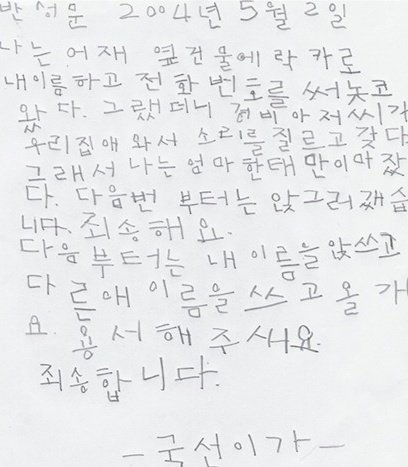 반성문 2004년 5월 2일
나는 어재 옆건물에 락카로
내이름하고 전화번호를 써놋코
왔다. 그랬더니 경비아저씨가
우리집애 와서 소리를 질르고 갖다
그래서 나는 엄마한태 만이마잤
다. 다음번 부터는 앉그러갰습
니다. 죄송해요.
다음부터는 내이름을앉쓰고
다른애이름을 쓰고올개
요. 용서해 주새요.
죄송합니다.
- 국선이가 -